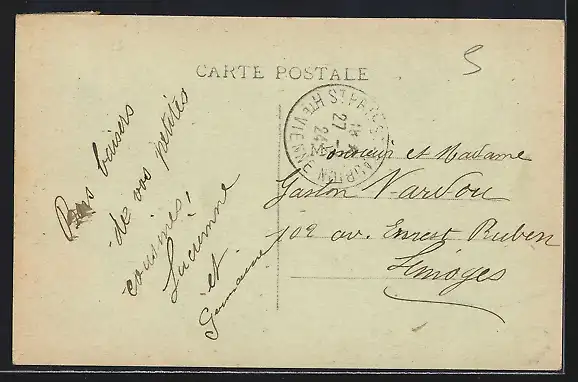 CARTE POSTALE
5
Bons baisers
de vos petites
cousines,
Lucienne
et
Germaine
Hte VIENNE
18
27 - 
24
Monsieur et Madame
Gaston
102 av. Ernest Ruben
Limoges